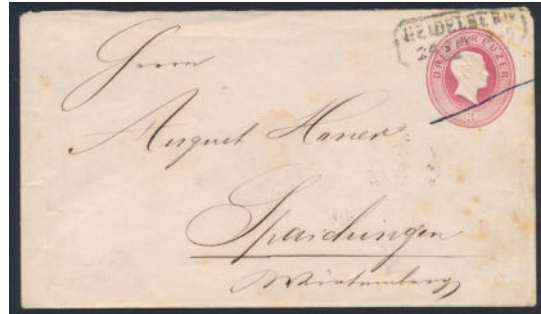 HEIDELBERG
DREI KREUZER
Herrn
August Hauer
Spaichingen
Würtemberg